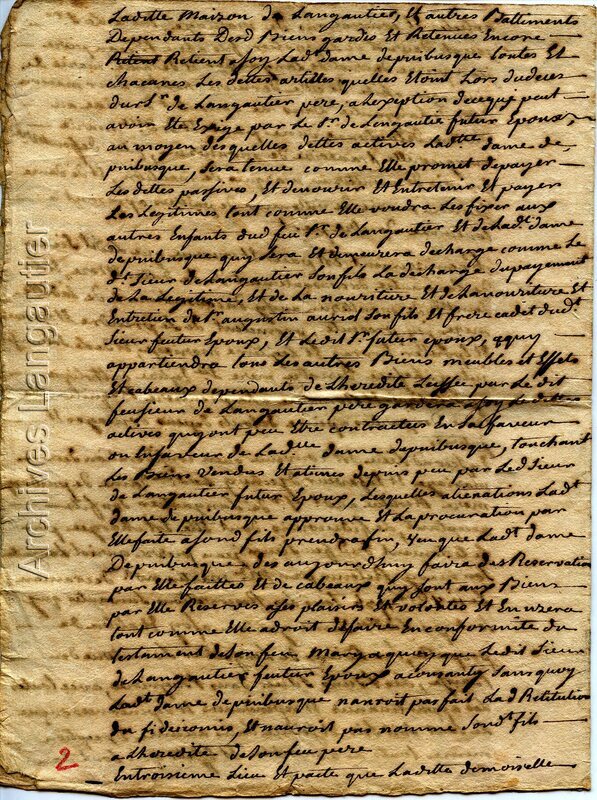 Laditte Maison de Langautier, Et autres Battiments
Dependants Desd Biens gardés Et Retenues Encore
Retent Retient a soy Lad. dame depuibusque toutes Et
chacunes Les dettes actives quelles Etoint Lors du deces
dud Sr. de Langautier pere, a lexeption de ce qui peut
avoir Eté Exigé par Le Sr. de Langautier futur Epoux
au moyen desquelles dettes actives Laditte dame de
puibusque, sera tenue comme Elle promet de payer
Les dettes passives, Et de nourir Et Entretenir Et payer
Les Legitimes tout comme Elle voudra Les fixer aux
autres Enfants dud feu Sr. de Langautier Et de Lad. dame
depuibusque quy sera Et demeurera decharge comme Le
dt. Sieur de Langautier son fils La decharge du payement
de La Legitime, Et de La nouriture Et de La nouriture Et
Entretien de Sr. augustin auriol son fils Et frere cadet dudt.
Sieur feutur Epoux, Et Ledit Sr. futur epoux, a quy
appartiendra tous Les autres Biens meubles et Effets
Et cabeaux dependants de Lheredité Laissée par Le dit
feu sieur de Langautier pere gardera a soy Les dettes
actives quy ont peu Etre contractées En sa faveur
ou En faveur de Lad. dame depuibusque, touchant
Les Biens Vendus Et alienés depuis peu par Led Sieur
de Langautier futur Epoux, Lesquelles alienations Ladt.
dame de puibusque approuve Et La procuration par
Elle faite a sond fils prendra fin, Veu que Ladt. dame
Depuibusque des aujourdhuy faira des Reservations
par Elle faittes Et de cabeaux quy sont aux Biens
par Elle Reservés a ses plaisirs Et volontés Et En uzera
tout comme Elle a droit de faire En conformité du
testament de son feu Mary a quoy que Ledit Sieur
de Langautier feutur Epoux a consanty sans quoy
Ladt. dame depuibusque nauroit pas fait La d Retitution
du fideicomis, Et nauroit pas nommé sondt fils
a Lheredité de son feu pere
En troisieme Lieu Et pacte que Laditte demoiselle
2
Archives Langautier